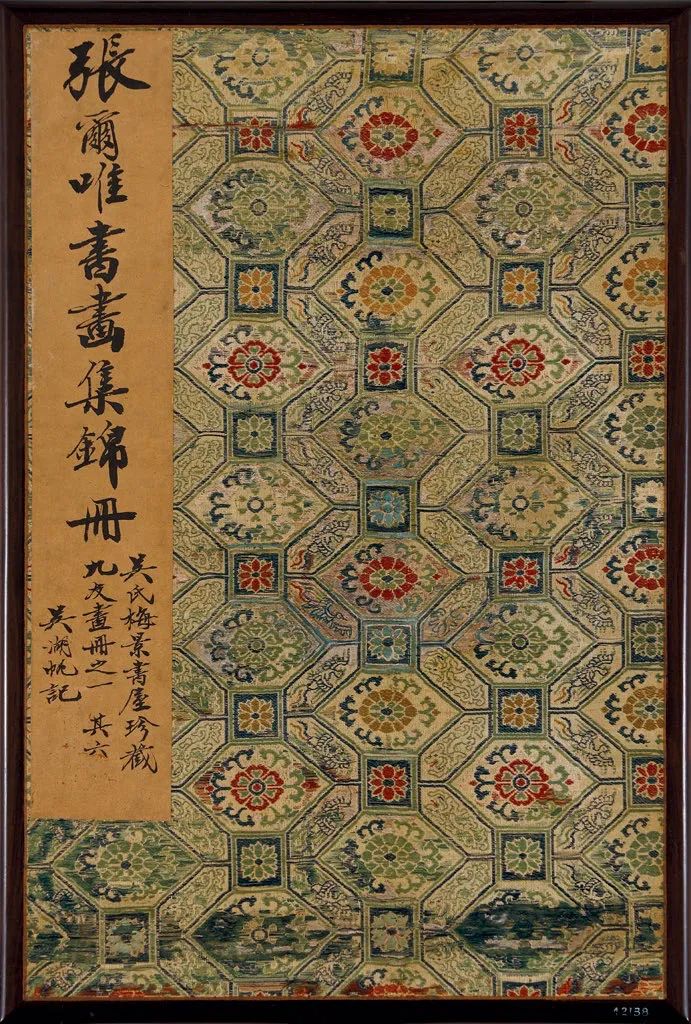 張爾唯書畫集錦冊
吳氏梅景書屋珍藏
九友畫冊之一 其六
吳湖帆記
42138